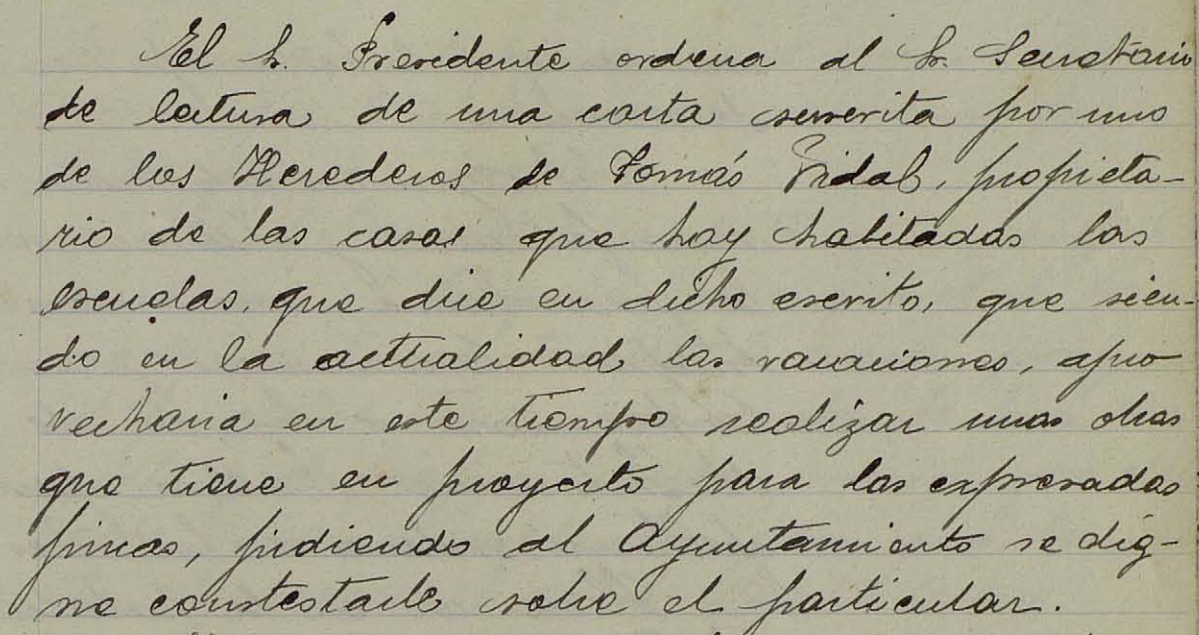 El Sr. Presidente ordena al Sr. Secretario
de lectura de una carta suscrita por uno
de los Herederos de Tomás Vidal, propieta-
rio de las casas que hay habitadas las
escuelas, que dice en dicho escrito, que sien-
do en la actualidad las vacaciones, apro
vecharia en este tiempo realizar unas obras
que tiene en proyecto para las expresadas
fincas, pidiendo al Ayuntamiento se dig-
ne contestarle sobre el particular.